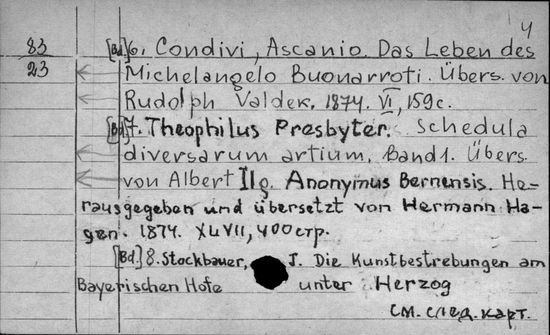 4
83 [Bd.] 6. Condivi, Ascanio. Das Leben des
23 Michelangelo Buonarroti. Übers. von
Rudolph Valdek. 1874. VI, 159c.
[Bd.] 7. Theophilus Presbyter. Schedula
diversarum artium. Band 1. Übers.
von Albert Ilg. Anonymus Bernensis. He-
rausgegeben und übersetzt von Hermann Ha-
gen. 1874. XLVII, 400 стр.
[Bd.] 8. Stockbauer, J. Die Kunstbestrebungen am
Bayerischen Hofe unter Herzog
см. след. карт.